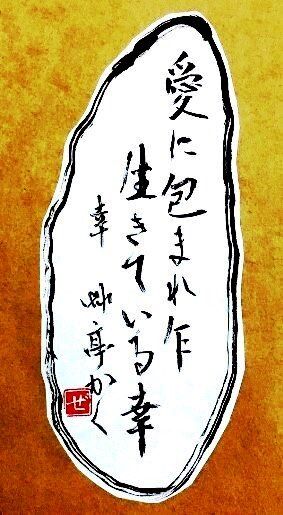 愛に包まれ乍
生きている幸
幸
亭かく
ぜ